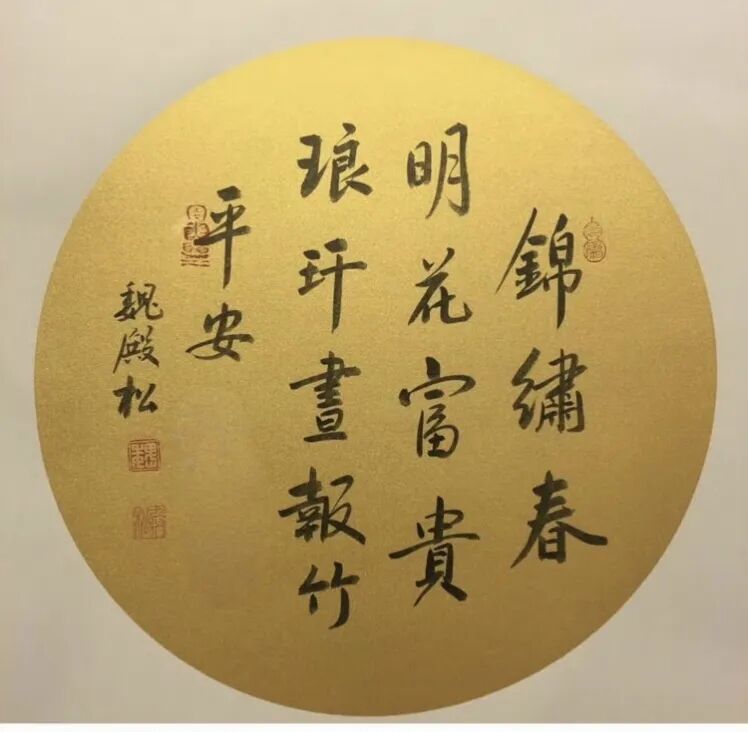 錦繡春
明花富貴
琅玕晝報竹
平安
魏殿松